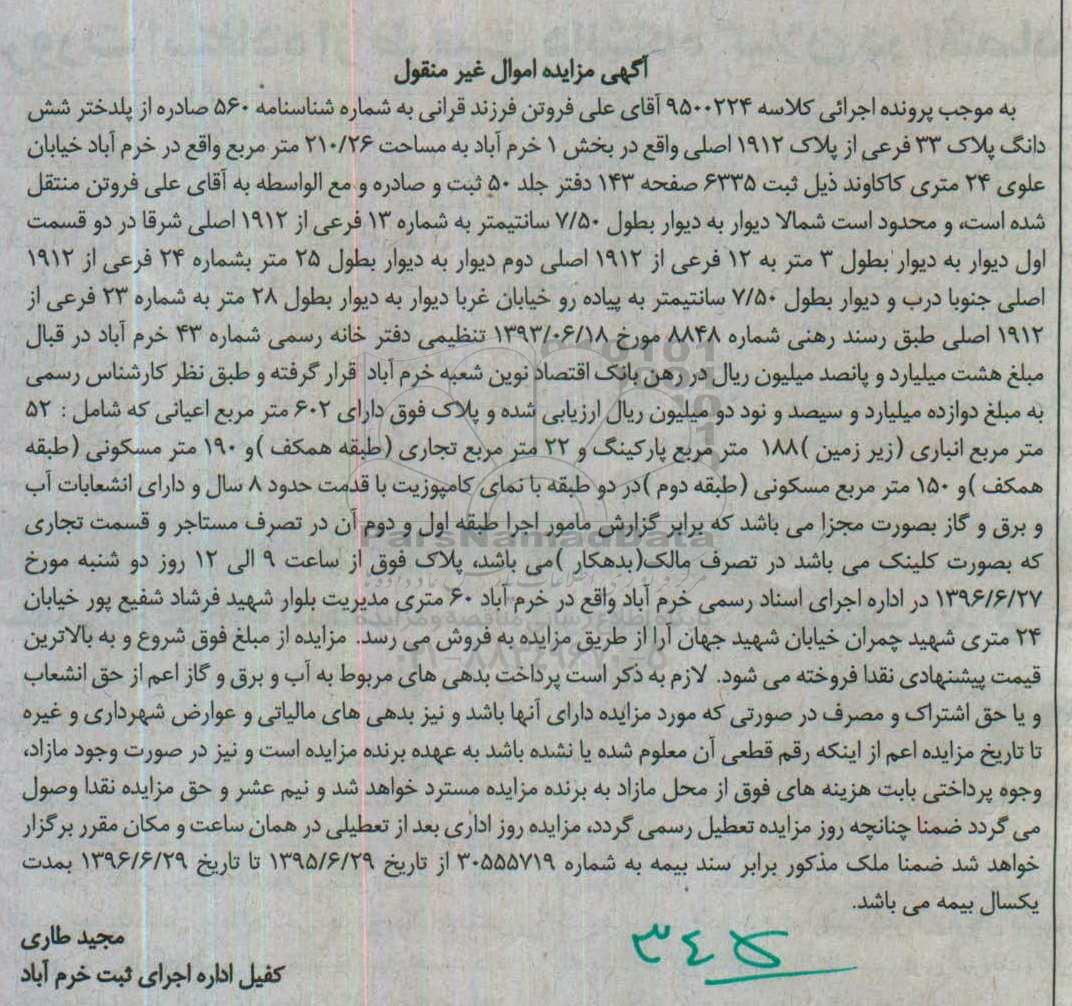 آگهی مزایده اموال غیر منقول
به موجب پرونده اجرائی کلاسه ۹۵۰۰۲۲۴ آقای علی فروتن فرزند قرانی به شماره شناسنامه ۵۶۰ صادره از پلدختر شش
دانگ پلاک ۳۳ فرعی از پلاک ۱۹۱۲ اصلی واقع در بخش ۱ خرم آباد به مساحت ۲۱۰/۲۶ متر مربع واقع در خرم آباد خیابان
علوی ۲۴ متری کاکاوند ذیل ثبت ۶۳۳۵ صفحه ۱۴۳ دفتر جلد ۵۰ ثبت و صادره و مع الواسطه به آقای علی فروتن منتقل
شده است، و محدود است شمالا دیوار به دیوار بطول ۷/۵۰ سانتیمتر به شماره ۱۳ فرعی از ۱۹۱۲ اصلی شرقا در دو قسمت
اول دیوار به دیوار بطول ۳ متر به ۱۲ فرعی از ۱۹۱۲ اصلی دوم دیوار به دیوار بطول ۲۵ متر بشماره ۲۴ فرعی از ۱۹۱۲
اصلی جنوبا درب و دیوار بطول ۷/۵۰ سانتیمتر به پیاده رو خیابان غربا دیوار به دیوار بطول ۲۸ متر به شماره ۲۳ فرعی از
۱۹۱۲ اصلی طبق رسند رهنی شماره ۸۸۴۸ مورخ ۱۳۹۳/۰۶/۱۸ تنظیمی دفتر خانه رسمی شماره ۴۳ خرم آباد در قبال
مبلغ هشت میلیارد و پانصد میلیون ریال در رهن بانک اقتصاد نوین شعبه خرم آباد قرار گرفته و طبق نظر کارشناس رسمی
به مبلغ دوازده میلیارد و سیصد و نود دو میلیون ریال ارزیابی شده و پلاک فوق دارای ۶۰۲ متر مربع اعیانی که شامل : ۵۲
متر مربع انباری (زیر زمین )۱۸۸ متر مربع پارکینگ و ۲۲ متر مربع تجاری (طبقه همکف )و ۱۹۰ متر مسکونی (طبقه
همکف )و ۱۵۰ متر مربع مسکونی (طبقه دوم )در دو طبقه با نمای کامپوزیت با قدمت حدود ۸ سال و دارای انشعابات آب
و برق و گاز بصورت مجزا می باشد که برابر گزارش مامور اجرا طبقه اول و دوم آن در تصرف مستاجر و قسمت تجاری
که بصورت کلینک می باشد در تصرف مالک(بدهکار )می باشد، پلاک فوق از ساعت ۹ الی ۱۲ روز دو شنبه مورخ
۱۳۹۶/۶/۲۷ در اداره اجرای اسناد رسمی خرم آباد واقع در خرم آباد ۶۰ متری مدیریت بلوار شهید فرشاد شفیع پور خیابان
۲۴ متری شهید چمران خیابان شهید جهان آرا از طریق مزایده به فروش می رسد. مزایده از مبلغ فوق شروع و به بالاترین
قیمت پیشنهادی نقدا فروخته می شود. لازم به ذکر است پرداخت بدهی های مربوط به آب و برق و گاز اعم از حق انشعاب
و یا حق اشتراک و مصرف در صورتی که مورد مزایده دارای آنها باشد و نیز بدهی های مالیاتی و عوارض شهرداری و غیره
تا تاریخ مزایده اعم از اینکه رقم قطعی آن معلوم شده یا نشده باشد به عهده برنده مزایده است و نیز در صورت وجود مازاد،
وجوه پرداختی بابت هزینه های فوق از محل مازاد به برنده مزایده مسترد خواهد شد و نیم عشر و حق مزایده نقدا وصول
می گردد ضمنا چنانچه روز مزایده تعطیل رسمی گردد، مزایده روز اداری بعد از تعطیلی در همان ساعت و مکان مقرر برگزار
خواهد شد ضمنا ملک مذکور برابر سند بیمه به شماره ۳۰۵۵۵۷۱۹ از تاریخ ۱۳۹۵/۶/۲۹ تا تاریخ ۱۳۹۶/۶/۲۹ بمدت
یکسال بیمه می باشد.
مجید طاری
کفیل اداره اجرای ثبت خرم آباد
ParsNamadData